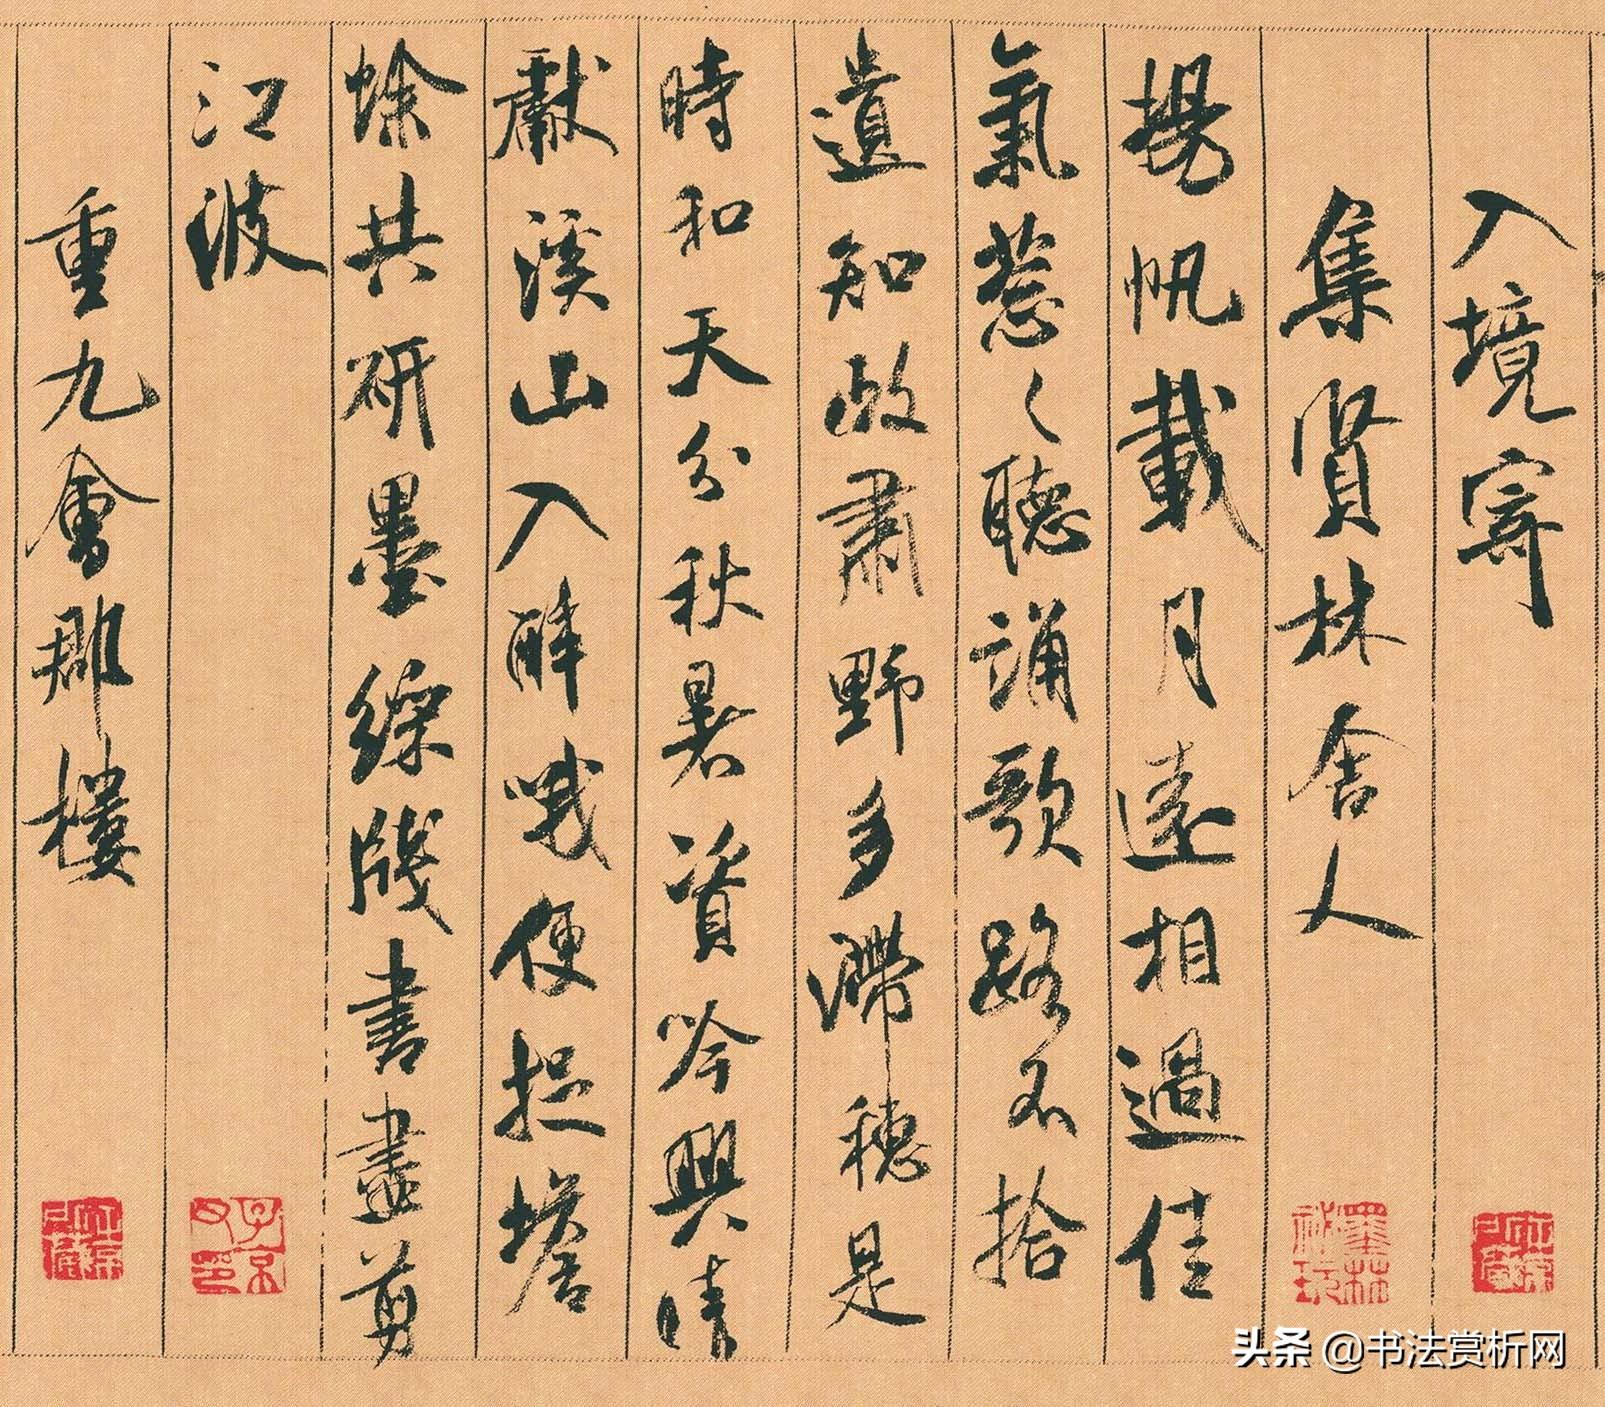 入境寄
集賢林舍人
揚帆載月遠相過佳
氣葱々聽誦歌路不拾
遺知政肅野多滯穗是
時和天分秋暑資吟興晴
獻溪山入醉哦便捉蟾
蜍共研墨綵牋書盡剪
江波
重九會郡樓
头条 @书法赏析网